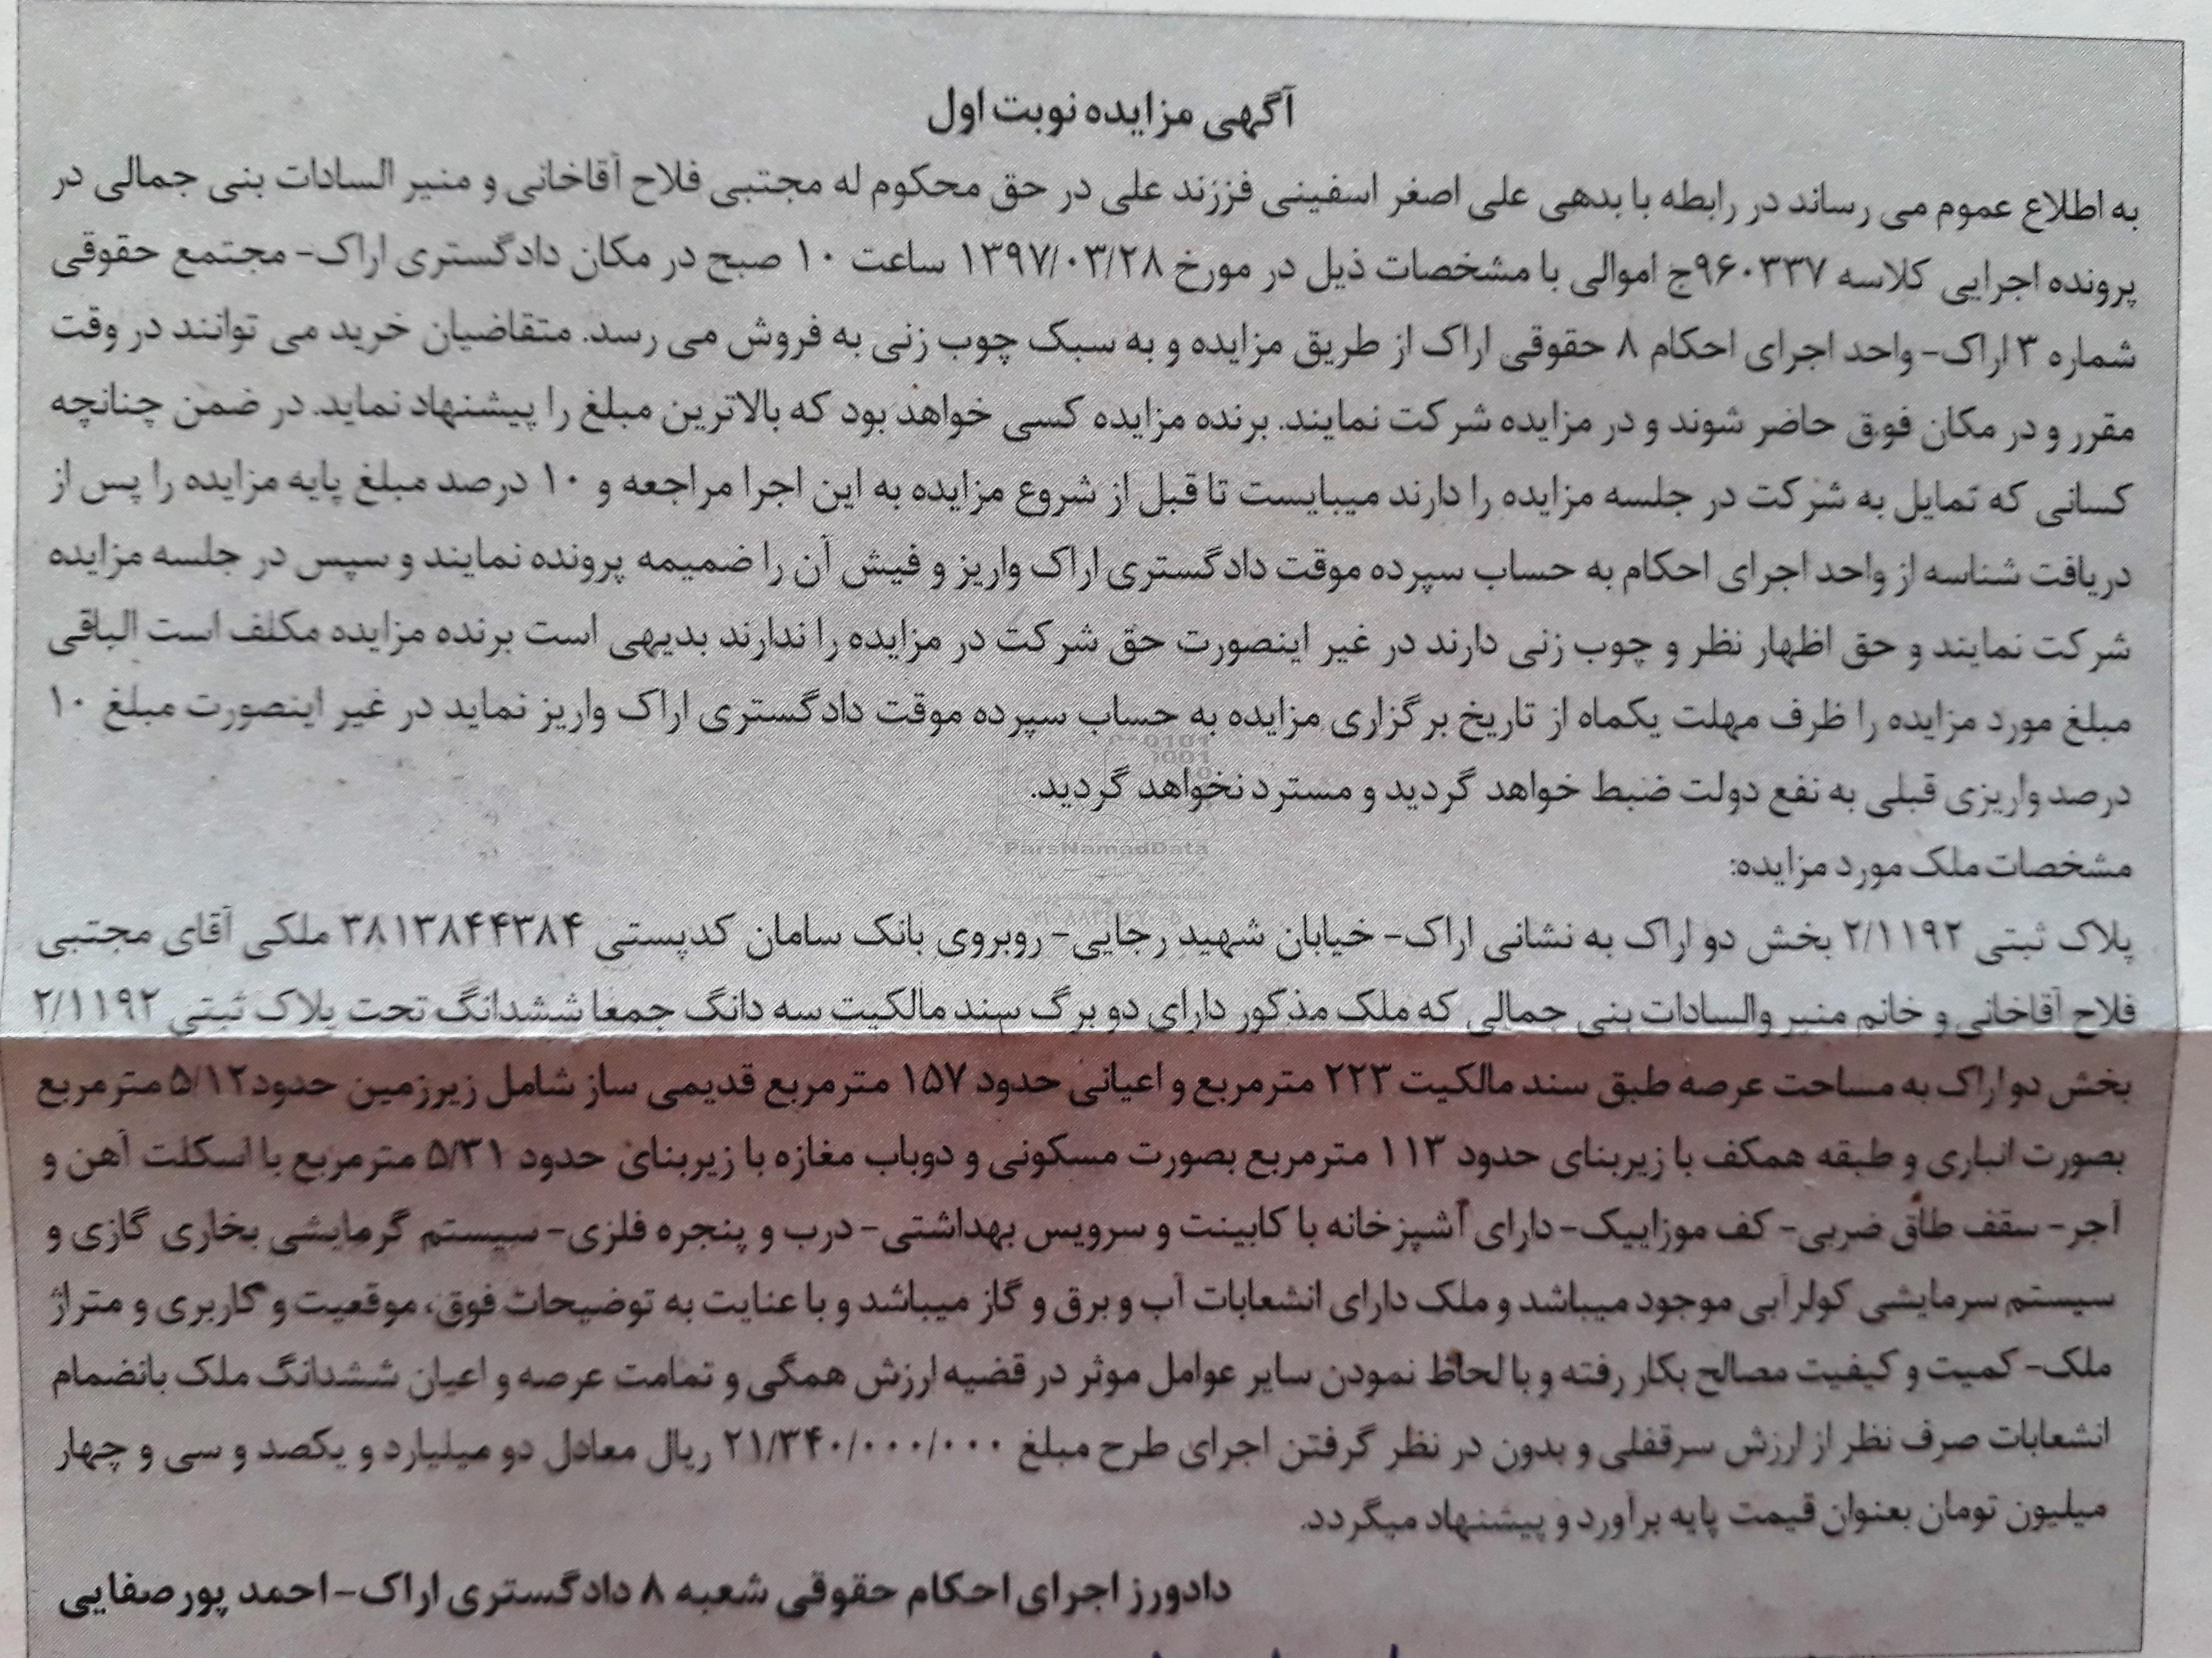 آگهی مزایده نوبت اول
به اطلاع عموم می رساند در رابطه با بدهی علی اصغر اسفینی فززند علی در حق محکوم له مجتبی فلاح آقاخانی و منیر السادات بنی جمالی در
پرونده اجرایی کلاسه ۹۶۰۳۳۷ج اموالی با مشخصات ذیل در مورخ ۱۳۹۷/۰۳/۲۸ ساعت ۱۰ صبح در مکان دادگستری اراک- مجتمع حقوقی
شماره ۳ اراک- واحد اجرای احکام ۸ حقوقی اراک از طریق مزایده و به سبک چوب زنی به فروش می رسد. متقاضیان خرید می توانند در وقت
مقرر و در مکان فوق حاضر شوند و در مزایده شرکت نمایند. برنده مزایده کسی خواهد بود که بالاترین مبلغ را پیشنهاد نماید. در ضمن چنانچه
کسانی که تمایل به شرکت در جلسه مزایده را دارند میبایست تا قبل از شروع مزایده به این اجرا مراجعه و ۱۰ درصد مبلغ پایه مزایده را پس از
دریافت شناسه از واحد اجرای احکام به حساب سپرده موقت دادگستری اراک واریز و فیش آن را ضمیمه پرونده نمایند و سپس در جلسه مزایده
شرکت نمایند و حق اظهار نظر و چوب زنی دارند در غیر اینصورت حق شرکت در مزایده را ندارند بدیهی است برنده مزایده مکلف است الباقی
مبلغ مورد مزایده را ظرف مهلت یکماه از تاریخ برگزاری مزایده به حساب سپرده موقت دادگستری اراک واریز نماید در غیر اینصورت مبلغ ۱۰
درصد واریزی قبلی به نفع دولت ضبط خواهد گردید و مسترد نخواهد گردید.
ParsNamadData
مشخصات ملک مورد مزایده:
پلاک ثبتی ۲/۱۱۹۲ بخش دو اراک به نشانی اراک- خیابان شهید رجایی- روبروی بانک سامان کدپستی ۳۸۱۳۸۴۴۳۸۴ ملکی آقای مجتبی
فلاح آقاخانی و خانم منیر والسادات بنی جمالی که ملک مذکور دارای دو برگ سند مالکیت سه دانگ جمعا ششدانگ تحت پلاک ثبتی ۲/۱۱۹۲
بخش دو اراک به مساحت عرصه طبق سند مالکیت ۲۲۳ مترمربع و اعیانی حدود ۱۵۷ مترمربع قدیمی ساز شامل زیرزمین حدود۵/۱۲ مترمربع
بصورت انباری و طبقه همکف با زیربنای حدود ۱۱۳ مترمربع بصورت مسکونی و دوباب مغازه با زیربنای حدود ۵/۳۱ مترمربع با اسکلت آهن و
آجر- سقف طاق ضربی- کف موزاییک- دارای آشپزخانه با کابینت و سرویس بهداشتی- درب و پنجره فلزی- سیستم گرمایشی بخاری گازی و
سیستم سرمایشی کولرآبی موجود میباشد و ملک دارای انشعابات آب و برق و گاز میباشد و با عنایت به توضیحات فوق، موقعیت و کاربری و متراژ
ملک- کمیت و کیفیت مصالح بکار رفته و با لحاظ نمودن سایر عوامل موثر در قضیه ارزش همگی و تمامت عرصه و اعیان ششدانگ ملک بانضمام
انشعابات صرف نظر از ارزش سرقفلی و بدون در نظر گرفتن اجرای طرح مبلغ ۲۱/۳۴۰/۰۰۰/۰۰۰ ریال معادل دو میلیارد و یکصد و سی و چهار
میلیون تومان بعنوان قیمت پایه برآورد و پیشنهاد میگردد.
دادورز اجرای احکام حقوقی شعبه ۸ دادگستری اراک- احمد پورصفایی